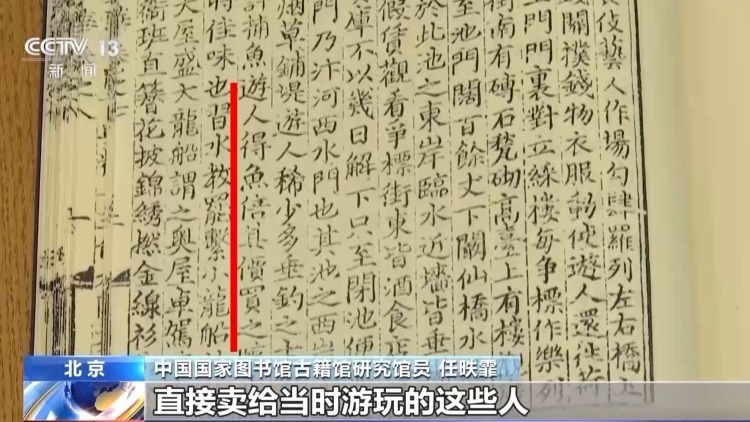 CCTV 13
新闻
食伎藝人作場勾肆羅列左右橋上
關撲錢物衣服動使遊人還往荷
門門裏對立綵樓每爭標作樂列
街南有磚石甃砌高臺上有樓
至池門闊百餘丈下闞仙橋水
於此池之東岸臨水近墻皆垂
假賃觀看爭標街東皆酒食店
庫不以幾日解下只至閉池便
門乃汴河西水門也其池之西岸
烟草鋪堤遊人稀少多垂釣之士
許捕魚遊人得魚倍其價買之
時佳味也習水教罷繫小龍船
大屋盛大龍船謂之奥屋車駕
衛班直簪花披錦繡撚金線衫
北京
中国国家图书馆古籍馆研究馆员 任昳霏
直接卖给当时游玩的这些人